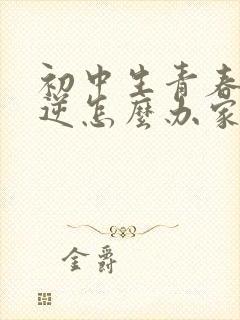 初中生青春
逆怎麼办家
金爵